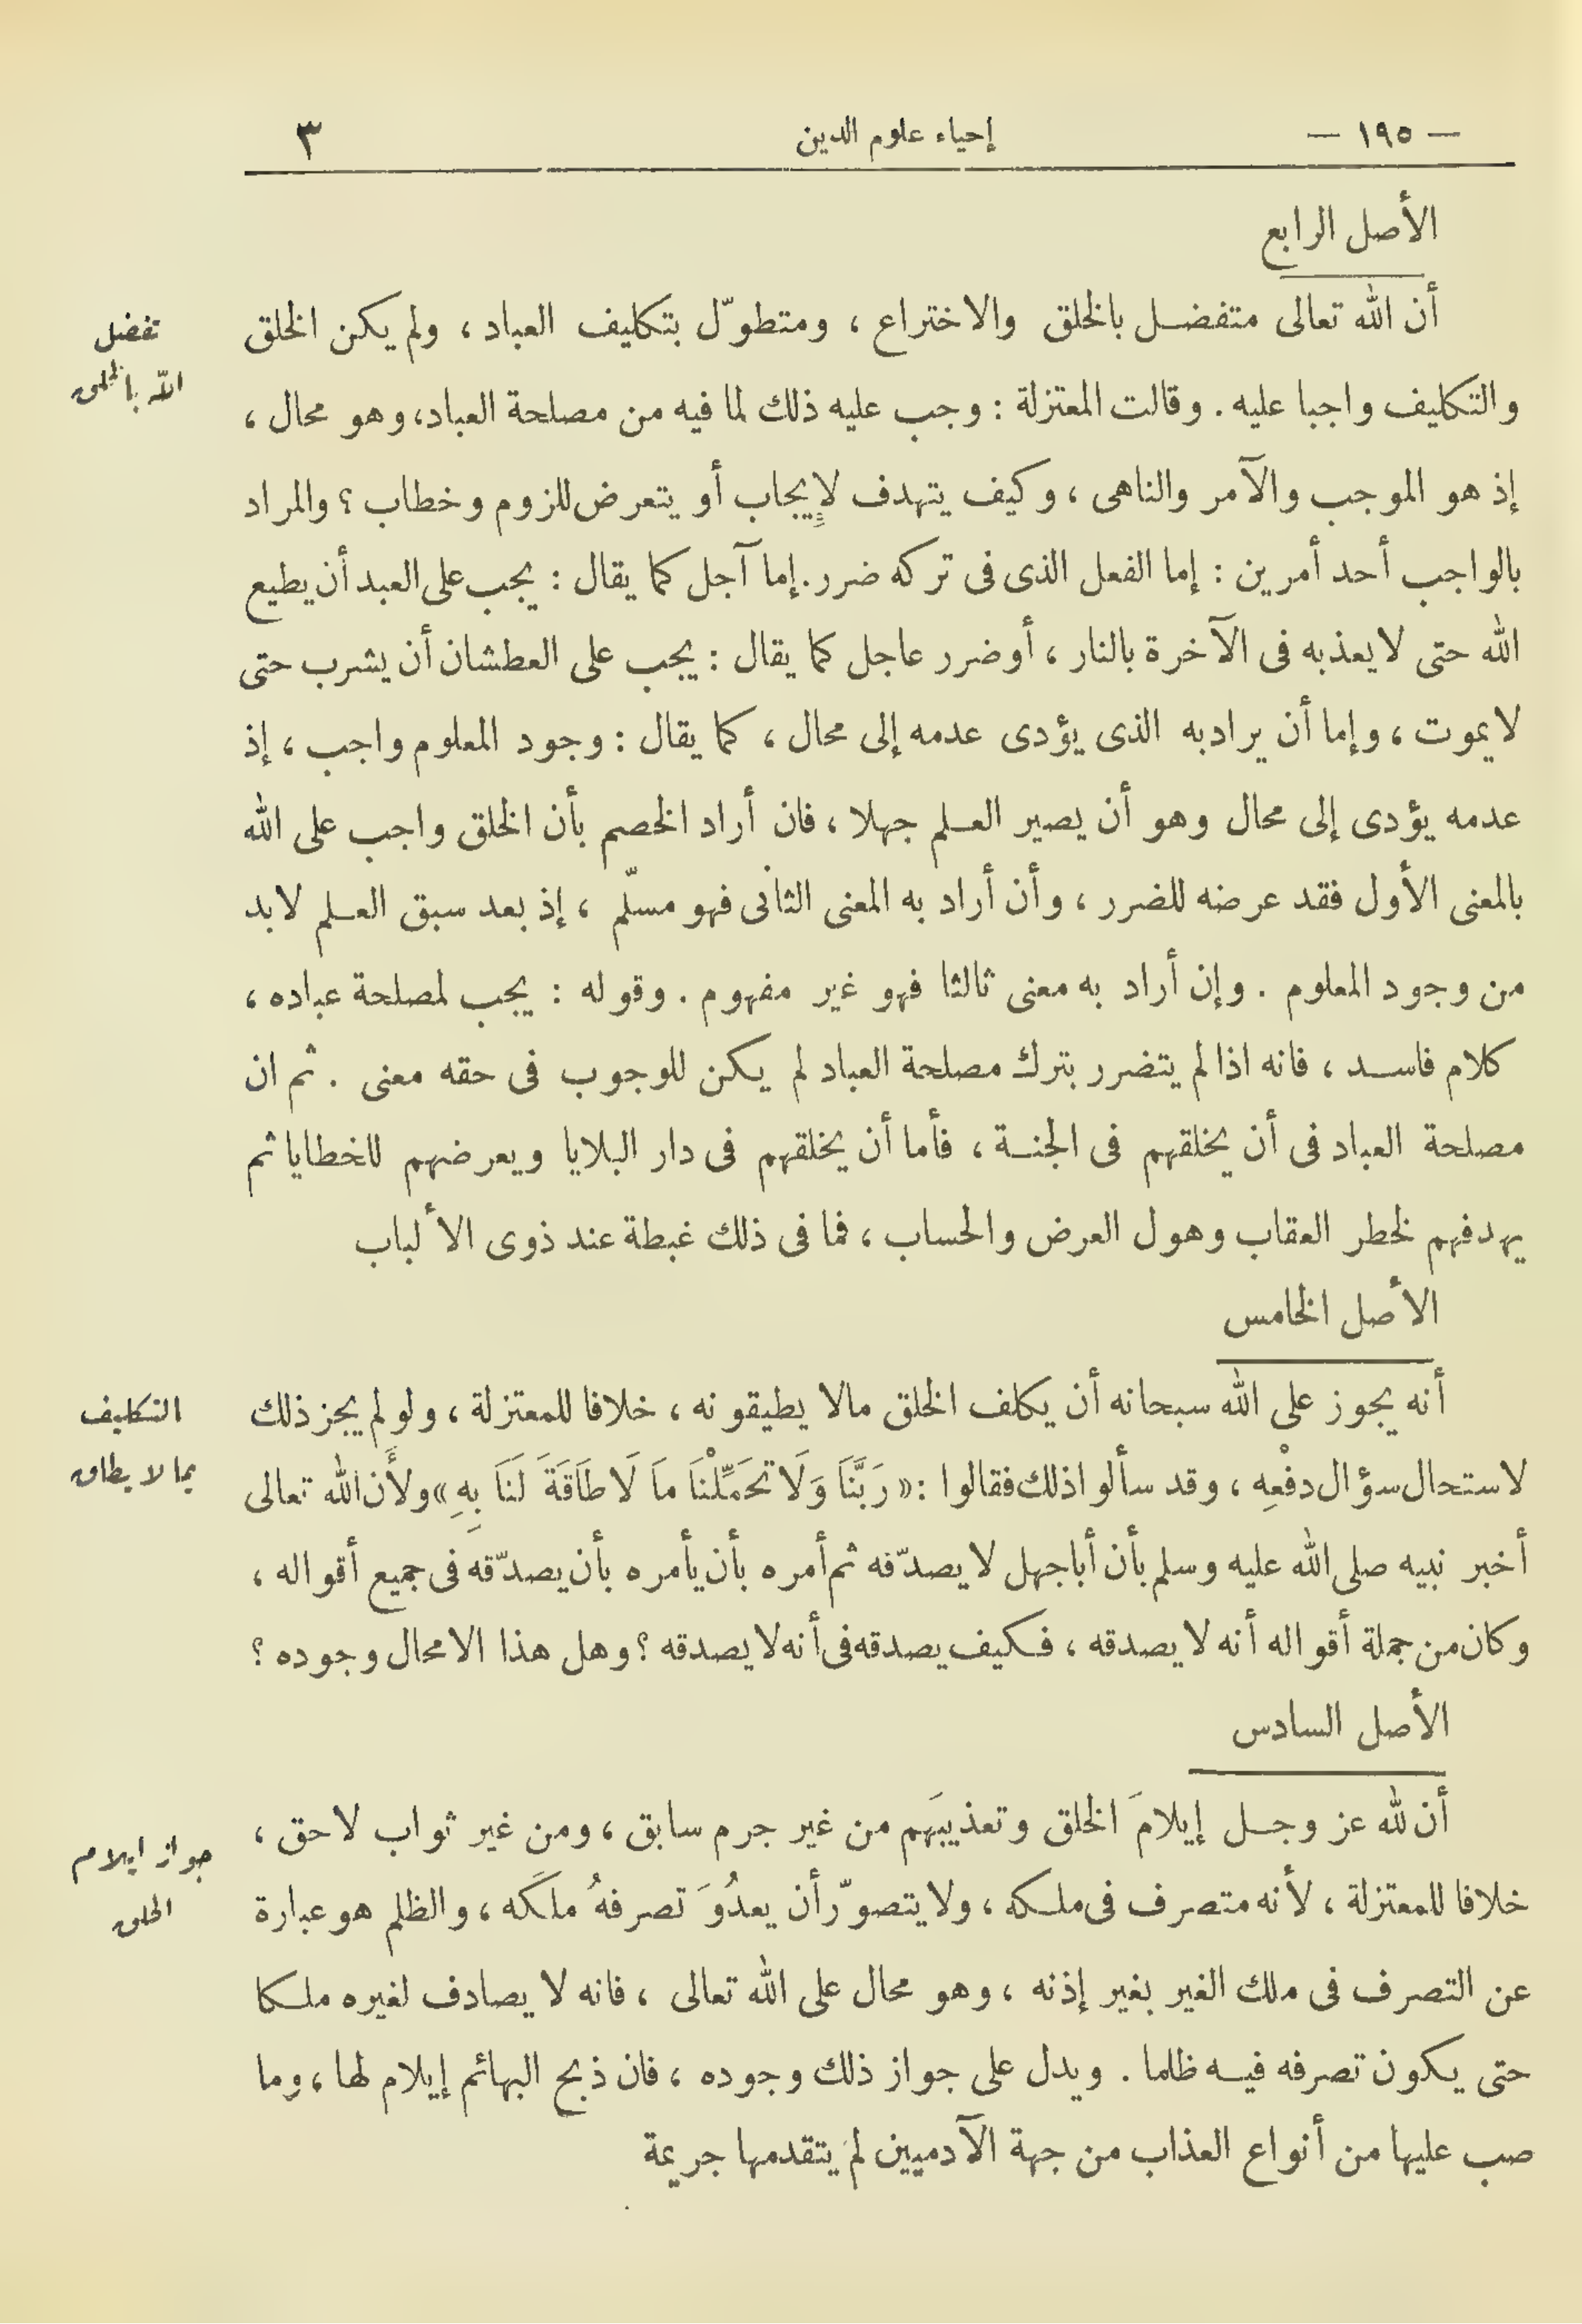 — ١٩٥ — إحياء علوم الدين ٣
الأصل الرابع
أن الله تعالى متفضل بالخلق والاختراع ، ومتطوّل بتكليف العباد ، ولم يكن الخلق
تفضل
والتكليف واجبا عليه . وقالت المعتزلة : وجب عليه ذلك لما فيه من مصلحة العباد، وهو محال ،
الله بالخلق
إذ هو الموجب والآمر والناهى ، وكيف يتهدف لإيجاب أو يتعرض للزوم وخطاب ؟ والمراد
بالواجب أحد أمرين : إما الفعل الذى فى تركه ضرر. إما آجل كما يقال : يجب على العبد أن يطيع
الله حتى لا يعذبه فى الآخرة بالنار ، أوضرر عاجل كما يقال : يجب على العطشان أن يشرب حتى
لا يموت ، وإما أن يراد به الذى يؤدى عدمه إلى محال ، كما يقال : وجود المعلوم واجب ، إذ
عدمه يؤدى إلى محال وهو أن يصير العلم جهلا ، فان أراد الخصم بأن الخلق واجب على الله
بالمعنى الأول فقد عرضه للضرر ، وأن أراد به المعنى الثانى فهو مسلّم ، إذ بعد سبق العلم لابد
من وجود المعلوم . وإن أراد به معنى ثالثا فهو غير مفهوم . وقوله : يجب لمصلحة عباده ،
كلام فاسد ، فانه اذا لم يتضرر بترك مصلحة العباد لم يكن للوجوب فى حقه معنى . ثم ان
مصلحة العباد فى أن يخلقهم فى الجنة ، فأما أن يخلقهم فى دار البلايا ويعرضهم للخطايا ثم
يهدفهم لخطر العقاب وهول العرض والحساب ، فما فى ذلك غبطة عند ذوى الألباب
الأصل الخامس
أنه يجوز على الله سبحانه أن يكلف الخلق مالا يطيقونه ، خلافا للمعتزلة ، ولو لم يجز ذلك
التكليف
لاستحال سؤال دفْعِه ، وقد سألوا ذلك فقالوا : « رَبَّنَا وَلَا تُحَمِّلْنَا مَا لَا طَاقَةَ لَنَا بِهِ » ولأَن الله تعالى
بما لا يطاق
أخبر نبيه صلى الله عليه وسلم بأن أباجهل لا يصدّقه ثم أمره بأن يأمره بأن يصدّقه فى جميع أقواله ،
وكان من جملة أقواله أنه لا يصدقه ، فكيف يصدقه فى أنه لا يصدقه ؟ وهل هذا الا محال وجوده ؟
الأصل السادس
أن لله عز وجل إيلامَ الخلق وتعذيبَهم من غير جرم سابق ، ومن غير ثواب لاحق ،
جواز ايلام
خلافا للمعتزلة ، لأنه متصرف فى ملكه ، ولا يتصوّر أن يعدُوَ تصرفهُ ملكَه ، والظلم هو عبارة
الخلق
عن التصرف فى ملك الغير بغير إذنه ، وهو محال على الله تعالى ، فانه لا يصادف لغيره ملكا
حتى يكون تصرفه فيه ظلما . ويدل على جواز ذلك وجوده ، فان ذبح البهائم إيلام لها ، وما
صب عليها من أنواع العذاب من جهة الآدميين لم يتقدمها جريمة